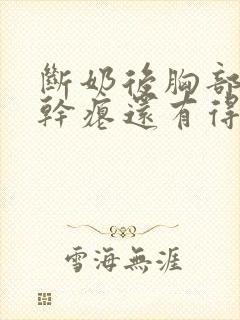 斷奶後胸部
幹癟還有得
雪海無涯